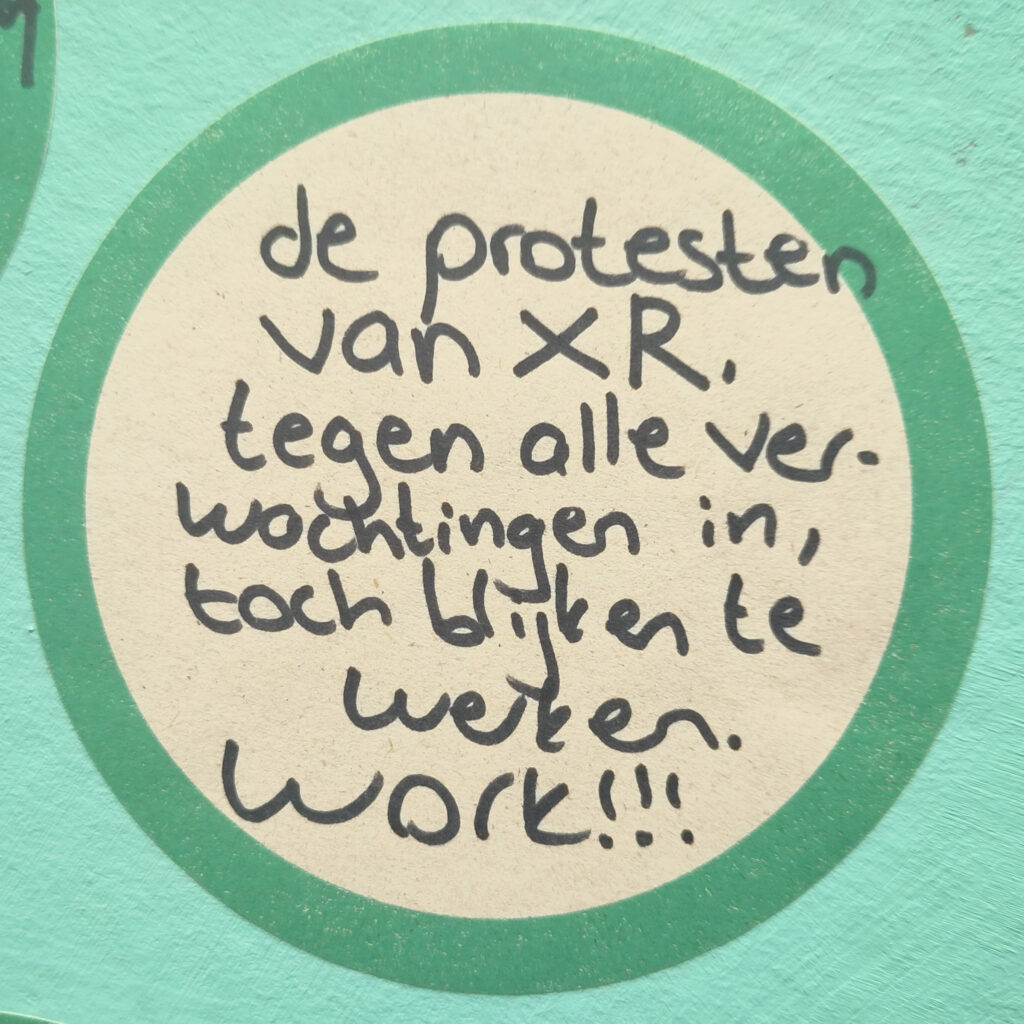 de protesten
van XR,
tegen alle ver-
wachtingen in,
toch blijken te
werken.
Work!!!